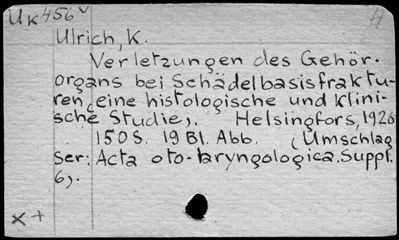 UK456
A
Ulrich, K.
Verletzungen des Gehör-
organs bei Schädelbasisfraktu-
ren (eine histologische und klini-
sche Studie). Helsingfors, 1926
150 S. 19 Bl. Abb. (Umschlag
ser: Acta oto-laryngologica. Suppl.
6).
x +